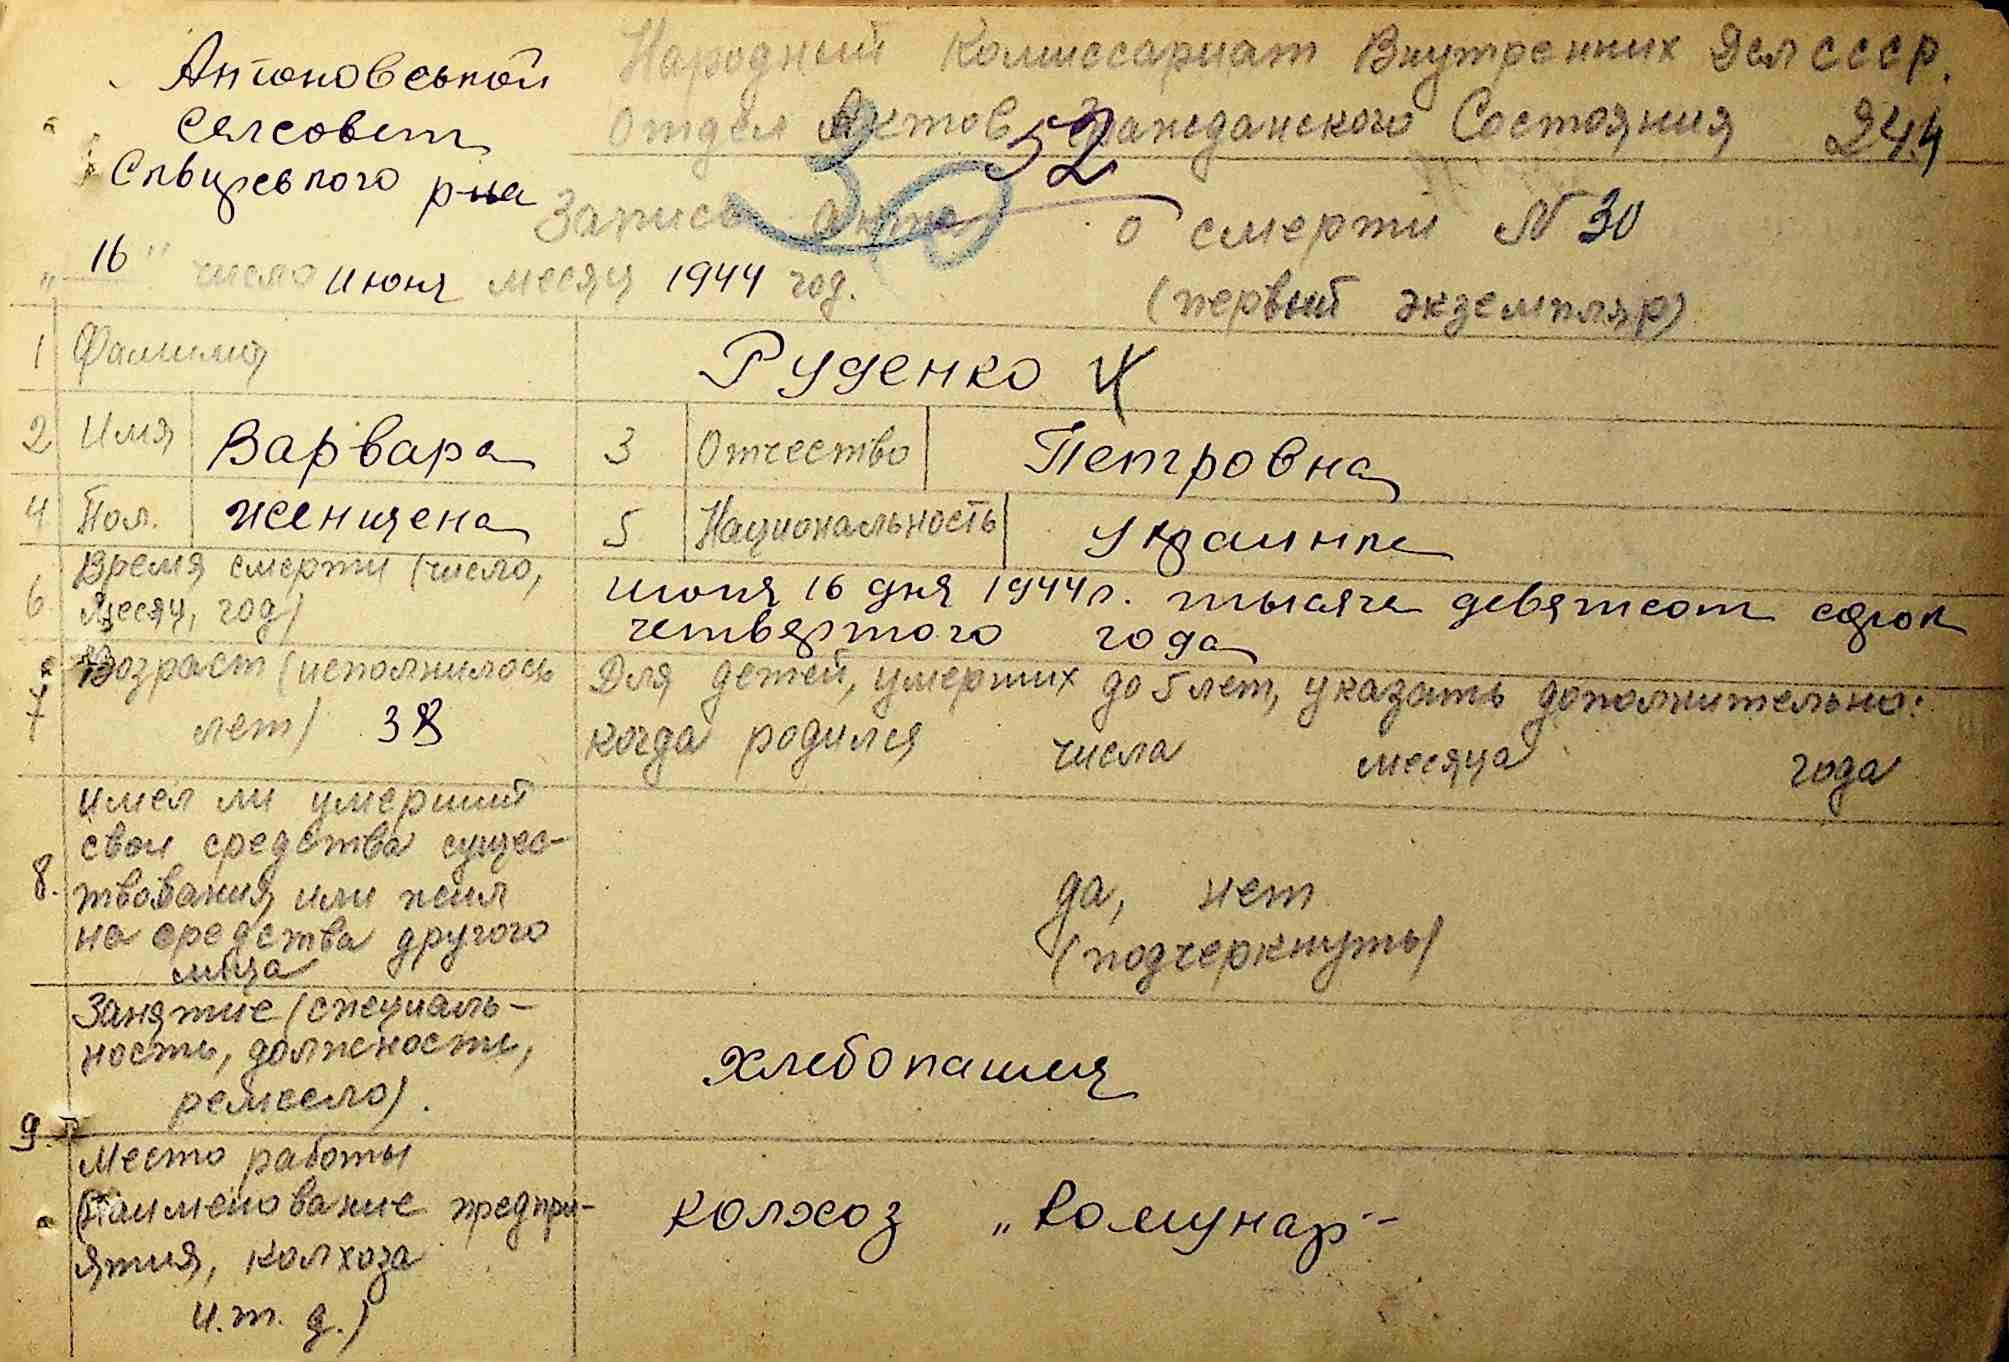 Антоновськой
Селсовет
р-на
Народний Комиссариат Внутренних Дел СССР.
Отдел Актов Гражданского Состояния 244
52
30
Запись акта о смерти № 30
(первый экземпляр)
„16" число июня месяц 1944 год.
1 Фамилия Руденко Ч
2 Имя Варвара 3 Отчество Петровна
4 Пол. женщена 5 Национальность Украинка
6 Время смерти (число,
месяц, год)
июня 16 дня 1944 г. тысяча девятсот сорок
четвертого года
7 Возраст (исполнилось
лет) 38
Для детей, умерших до 5 лет, указать дополнительно:
когда родился числа месяца года
8. имел ли умерший
свои средства сущес-
твования, или жил
на средства другого
лица
да, нет
(подчеркнуть)
9. Занятие (специаль-
ность, должность,
ремесло).
хлебопашия
Место работы
(Наименование предпри-
ятия, колхоза
и. т. д.)
колхоз „Комунар"